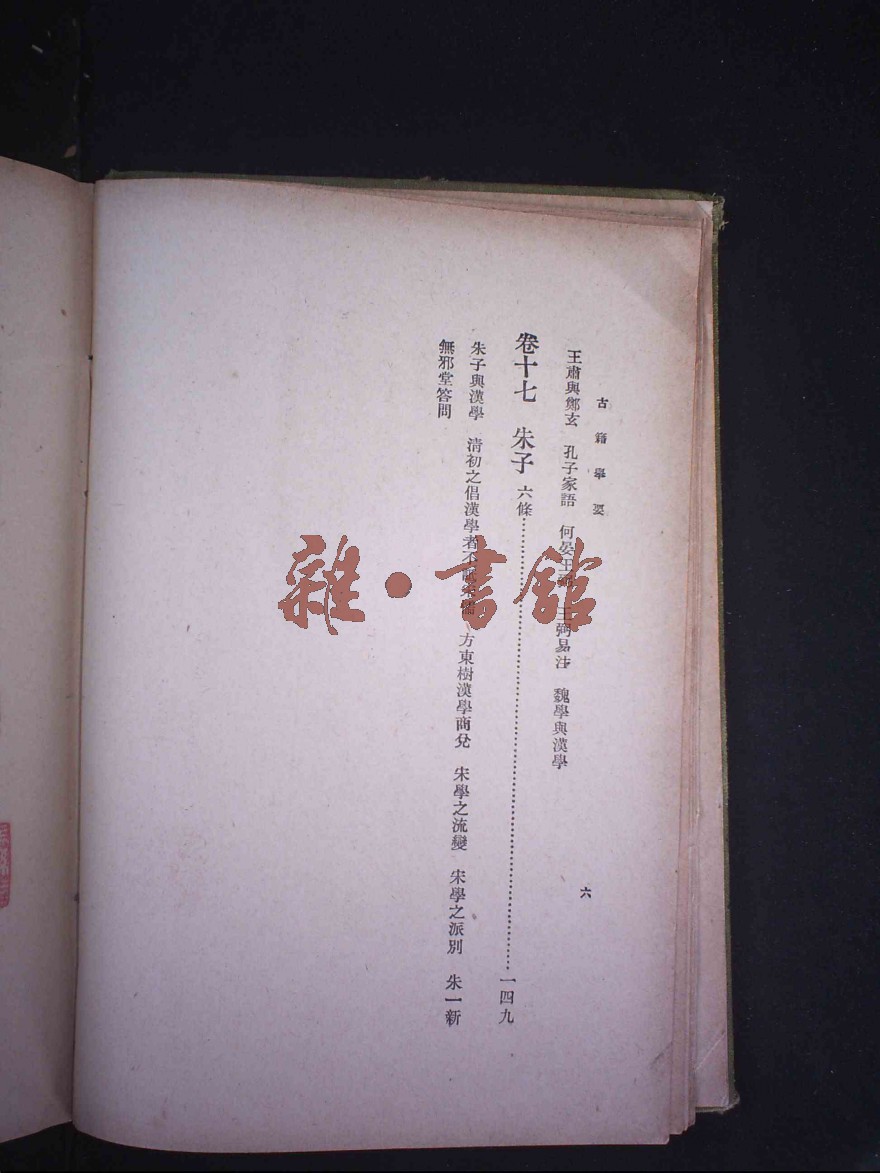 古籍舉要
六
王肅與鄭玄　孔子家語　何晏王弼　王弼易注　魏學與漢學
卷十七　朱子　六條……一四九
朱子與漢學　清初之倡漢學者不　方東樹漢學商兌　宋學之流變　宋學之派別　朱一新
無邪堂答問
雜·書館